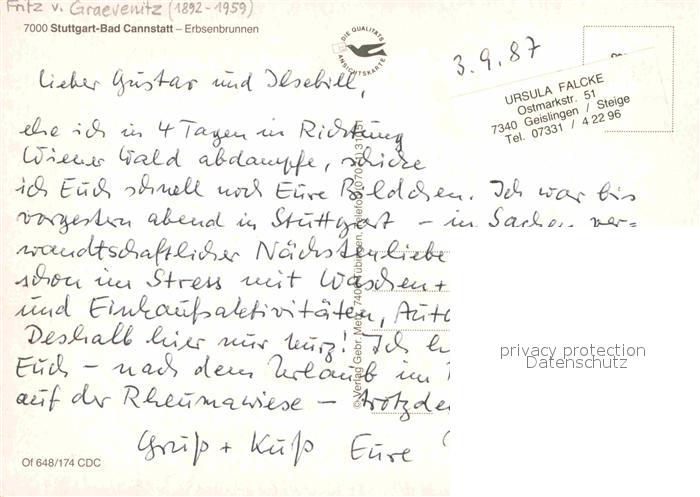 Fritz v. Graevenitz (1892-1959)
7000 Stuttgart-Bad Cannstatt – Erbsenbrunnen
DIE QUALITÄTS ANSICHTSKARTE
3.9.87
URSULA FALCKE
Ostmarkstr. 51
7340 Geislingen / Steige
Tel. 07331 / 4 22 96
Lieber Gustav und Ilsebill,
ehe ich in 4 Tagen in Richtung
Wiener Wald abdampfe, schicke
ich Euch schnell noch Eure Bildchen. Ich war bis
vorgestern abend in Stuttgart – in Sachen ver=
wandtschaftlicher Nächstenliebe
schon im Stress mit Waschen +
und Einkaufsaktivitäten, Auto
Deshalb hier nur kurz! Ich
Euch – nach dem Urlaub im
auf der Rheumawiese – trotzde
Gruß + Kuß Eure
© Verlag Gebr. Metz, 7400 Tübingen, Telefon
Of 648/174 CDC
privacy protection
Datenschutz